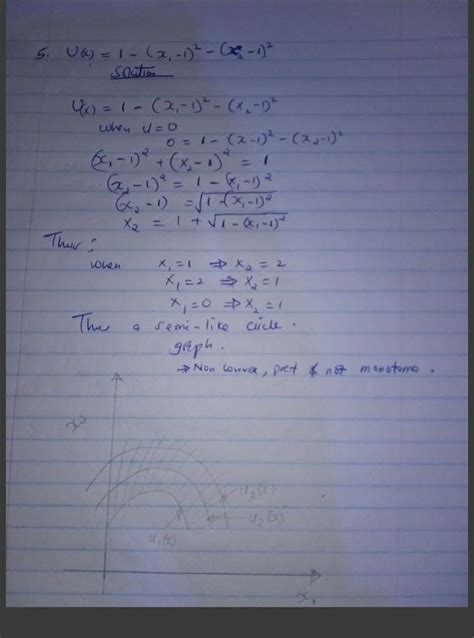 5. U(x) = 1 - (x₁-1)² - (x₂-1)²
Solution
U(x) = 1 - (x₁-1)² - (x₂-1)²
when U=0
0 = 1 - (x-1)² - (x₂-1)²
(x₁-1)² + (x₂-1)² = 1
(x₂-1)² = 1 - (x₁-1)²
(x₂-1) = √1-(x₁-1)²
x₂ = 1 + √1-(x₁-1)²
Thus:
when x₁=1 ⇒ x₂=2
x₁=2 ⇒ x₂=1
x₁=0 ⇒ x₂=1
Thus a semi-like circle.
graph.
→ Non convex, pref & not monotone.
x²
u₃(x)
u₂(x)
u₁(x)
x₁